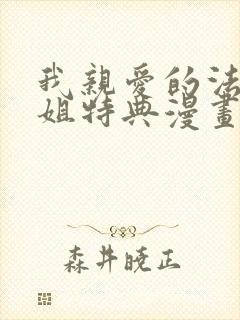 我親愛的法
姐特典漫畫
森井暁正